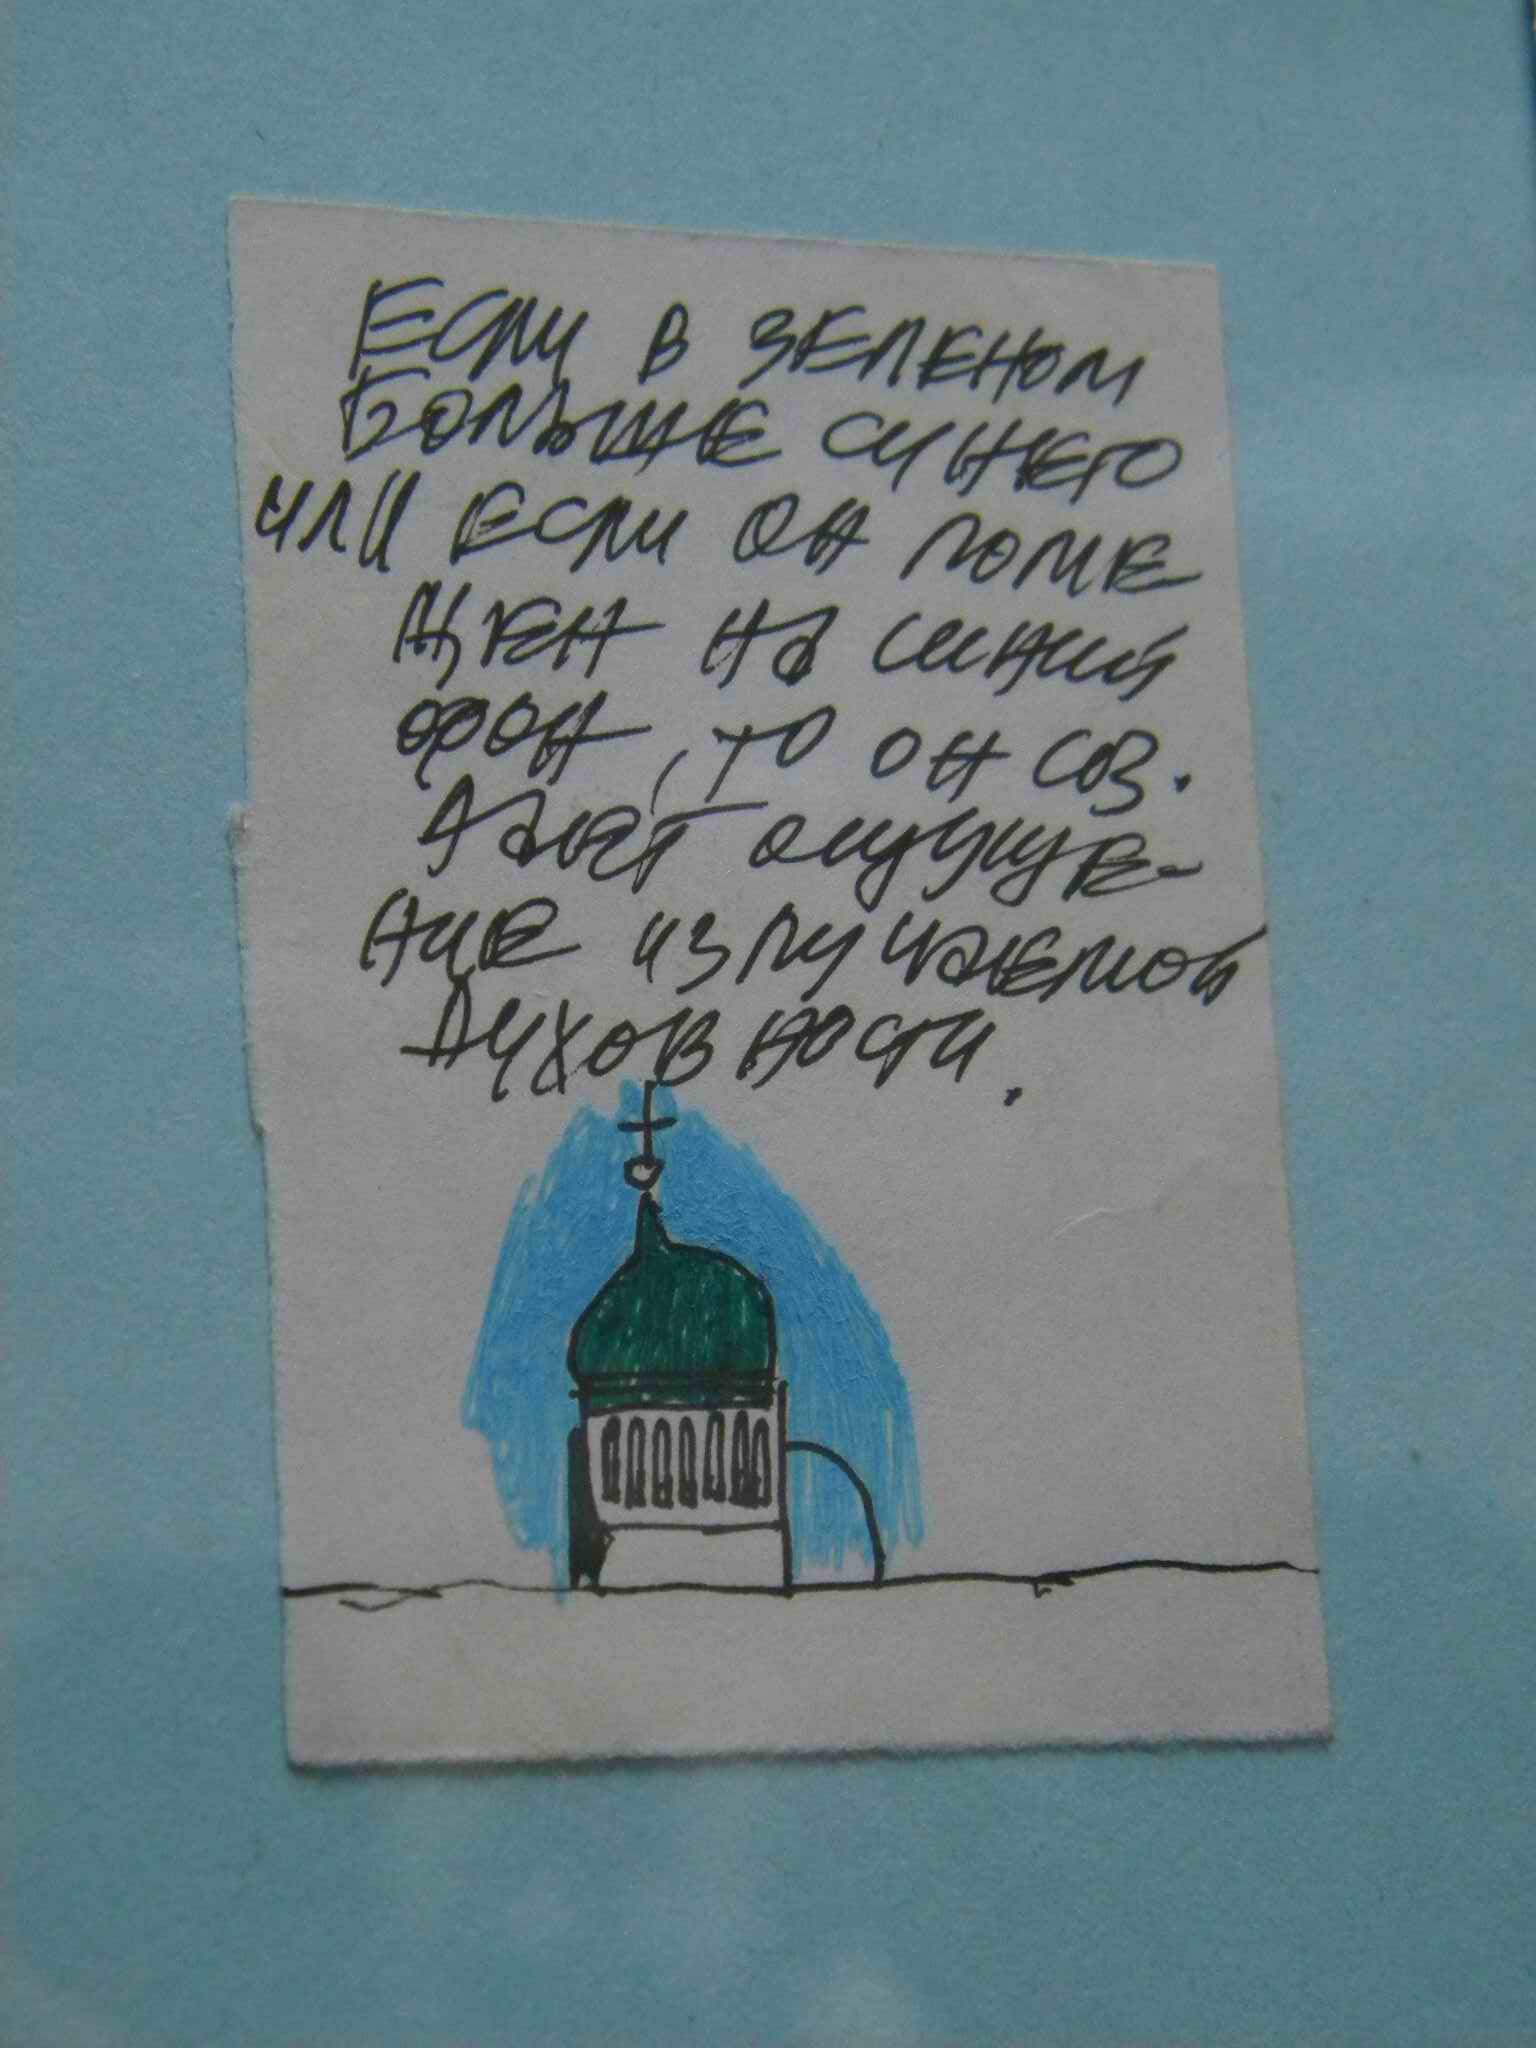 Если в зеленом
больше синего
или если он поме
щен на синий
фон, то он соз.
дает ощуще-
ние излучаемой
духовности.